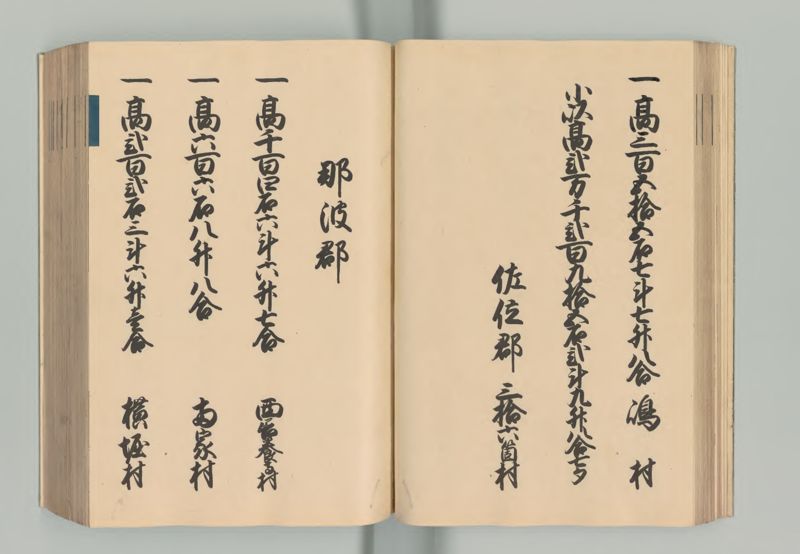 一高三百五拾五石七斗七升八合 嶋村
小以高弐万千弐百九拾五石弐斗九升八合七夕
佐位郡 三拾六箇村
那波郡
一高千百四石六斗六升七合 西 村
一高六百六石八升八合 家村
一高弐百弐石三斗六升壱合 横堀村